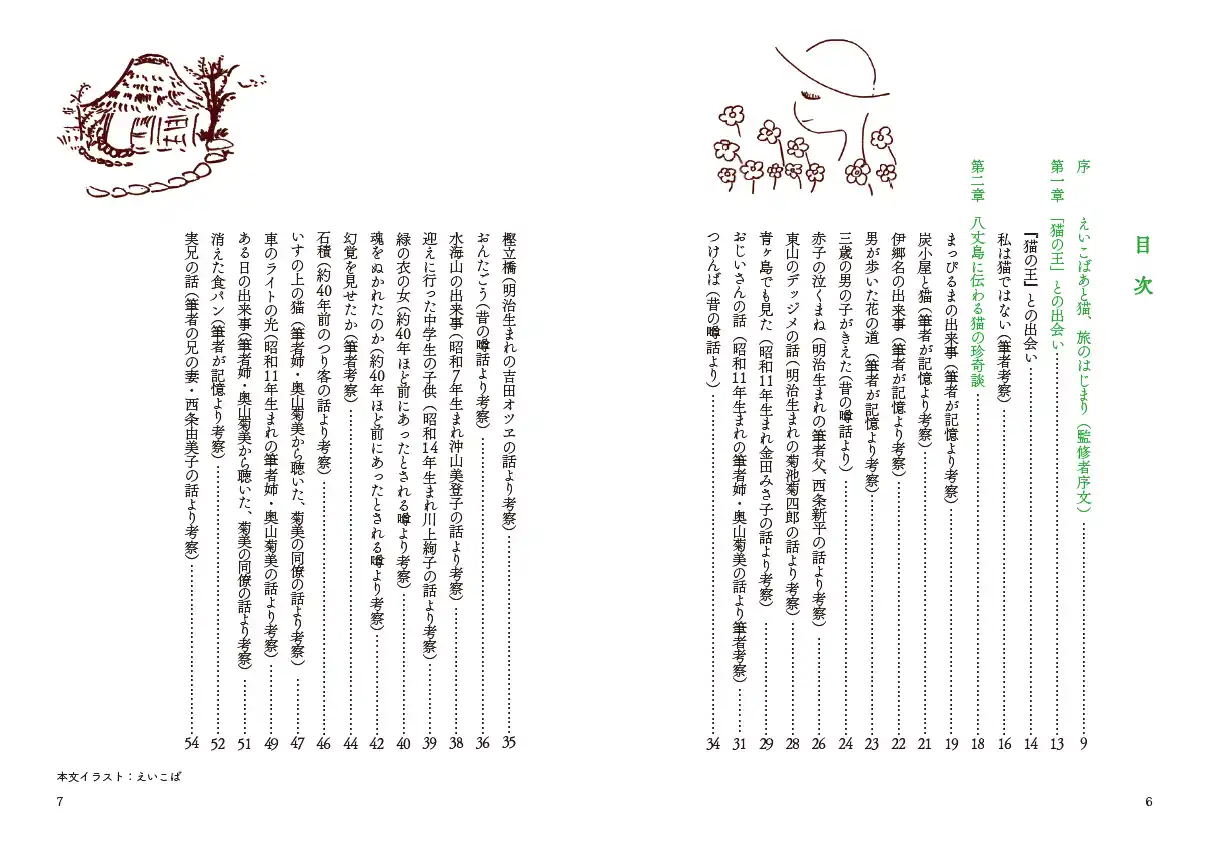 目次
序 えいこばあと猫、旅のはじまり（監修者序文）……9
第一章 「猫の王」との出会い……13
『猫の王』との出会い……14
私は猫ではない（筆者考察）……16
第二章 八丈島に伝わる猫の珍奇談……18
まっぴるまの出来事（筆者が記憶より考察）……19
炭小屋と猫（筆者が記憶より考察）……21
伊郷名の出来事（筆者が記憶より考察）……22
男が歩いた花の道（筆者が記憶より考察）……23
三歳の男の子がきえた（昔の噂話より）……24
赤子の泣くまね（明治生まれの筆者父、西条新平の話より考察）……26
東山のデッジメの話（明治生まれの菊池菊四郎の話より考察）……28
青ヶ島でも見た（昭和11年生まれ金田みさ子の話より考察）……29
おじいさんの話（昭和11年生まれの筆者姉・奥山菊美の話より筆者考察）……31
つけんば（昔の噂話より）……34
樫立橋（明治生まれの吉田オツヱの話より考察）……35
おんたごう（昔の噂話より考察）……36
水海山の出来事（昭和7年生まれ沖山美登子の話より考察）……38
迎えに行った中学生の子供（昭和14年生まれ川上絢子の話より考察）……39
緑の衣の女（約40年ほど前にあったとされる噂より考察）……40
魂をぬかれたのか（約40年ほど前にあったとされる噂より考察）……42
幻覚を見せたか（筆者考察）……44
石積（約40年前のつり客の話より考察）……46
いすの上の猫（筆者姉・奥山菊美から聴いた、菊美の同僚の話より考察）……47
車のライトの光（昭和11年生まれの筆者姉・奥山菊美の話より考察）……49
ある日の出来事（筆者姉・奥山菊美から聴いた、菊美の同僚の話より考察）……51
消えた食パン（筆者が記憶より考察）……52
実兄の話（筆者の兄の妻・西条由美子の話より考察）……54
本文イラスト：えいこば
7
6